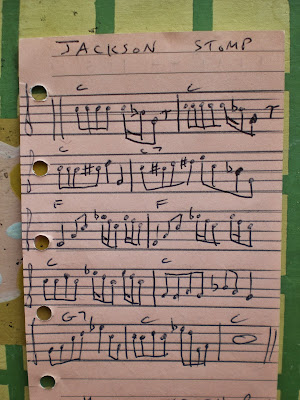 JACKSON STOMP
C C
C C7
F F
C C
G7 C C